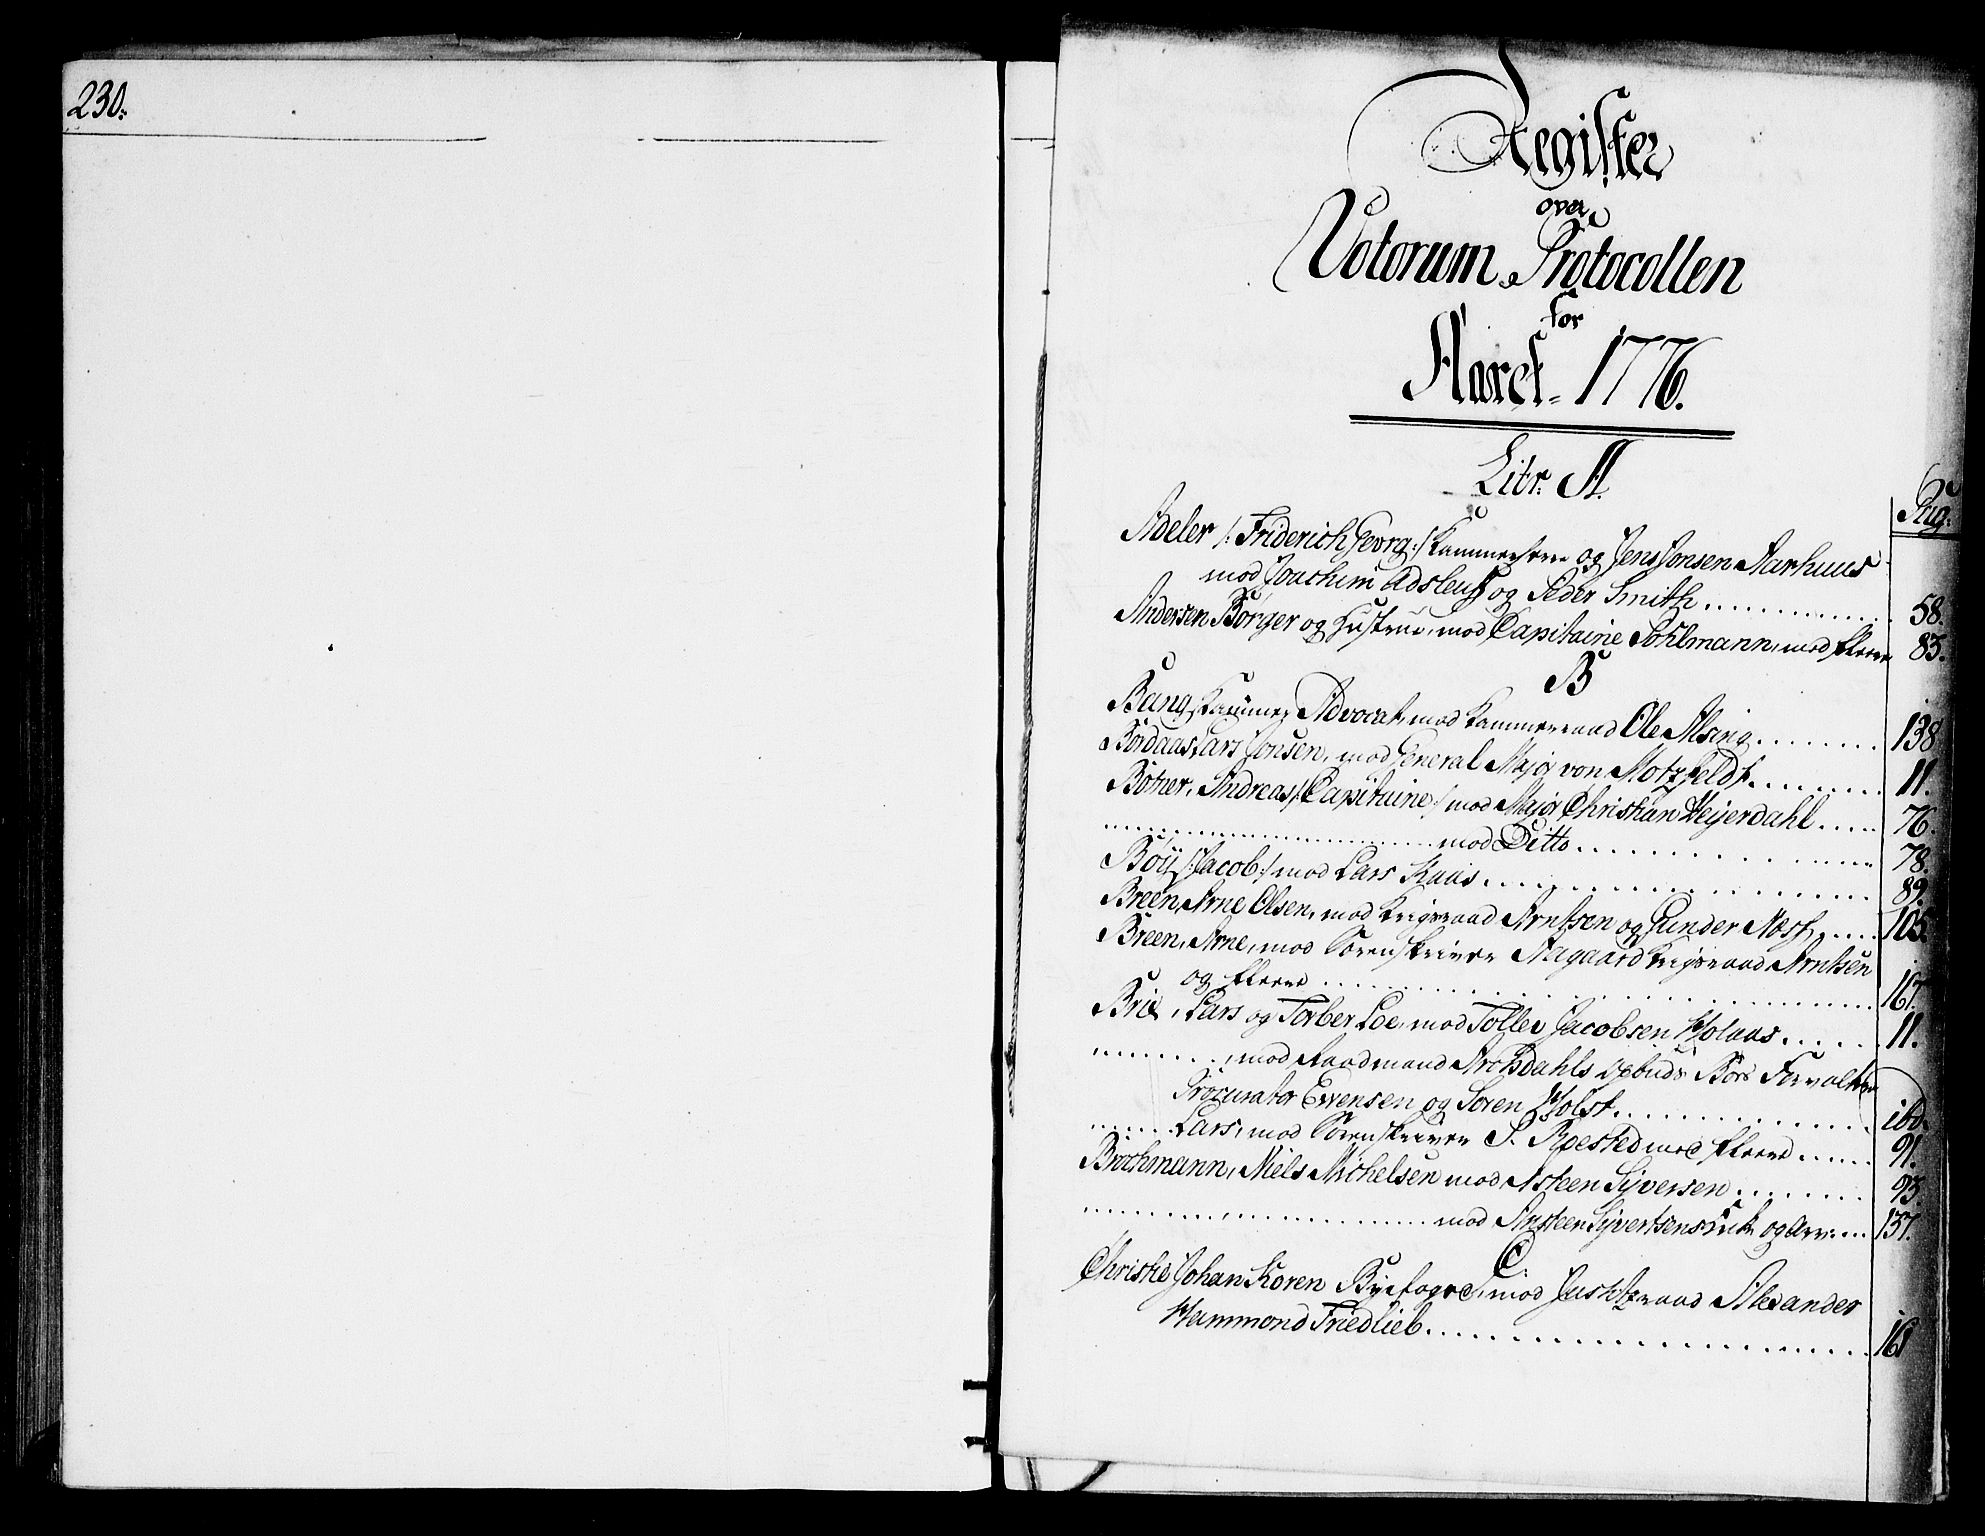 230.
Register
over
Votorum Protocollen
for
Aaret 1776.
Litr. A.
Pag:
Adeler /: Friderich Georg :/ Kammerherre og Jens Jonsen Aarhuus
mod Joachim Adsleuf og Peder Smith 58.
Andersen Börger og Hustrue, mod Capitaine Pohlmann, med fleere 83.
B
Bang, Kammer Advocat, mod Kammerraad Ole Alsing 138
Bordaas, Lars Jonsen, mod General Major von Motzfeldt 11.
Botner, Andreas /: Capitaine :/ mod Major Christian Heyerdahl 76.
mod Ditto 78.
Böy /: Jacob :/ mod Lars Kaas 89.
Breen, Arne Olsen, mod Krigsraad Arntsen og Gunder Næss 105.
Breen, Arne, mod Sorenskriver Aagaard Krigsraad Arntsen
og fleere 167.
Brie, Lars og Torber Loe, mod Tollev Jacobsen Holaas 11.
, mod Raadmand Arosdahls Opbuds Boes Forvalter
Procurator Evensen og Soren Holst ibd.
Lars, mod Sorenskriver S. Roested med fleere 91.
Brochmann, Niels Michelsen mod Asteen Syversen 93.
mod Ansteen Syvertsens Enke og Arv: 137.
C.
Christie Johan Koren Byefoged, mod Justitzraad Alexander
Hammond Friedlieb 161